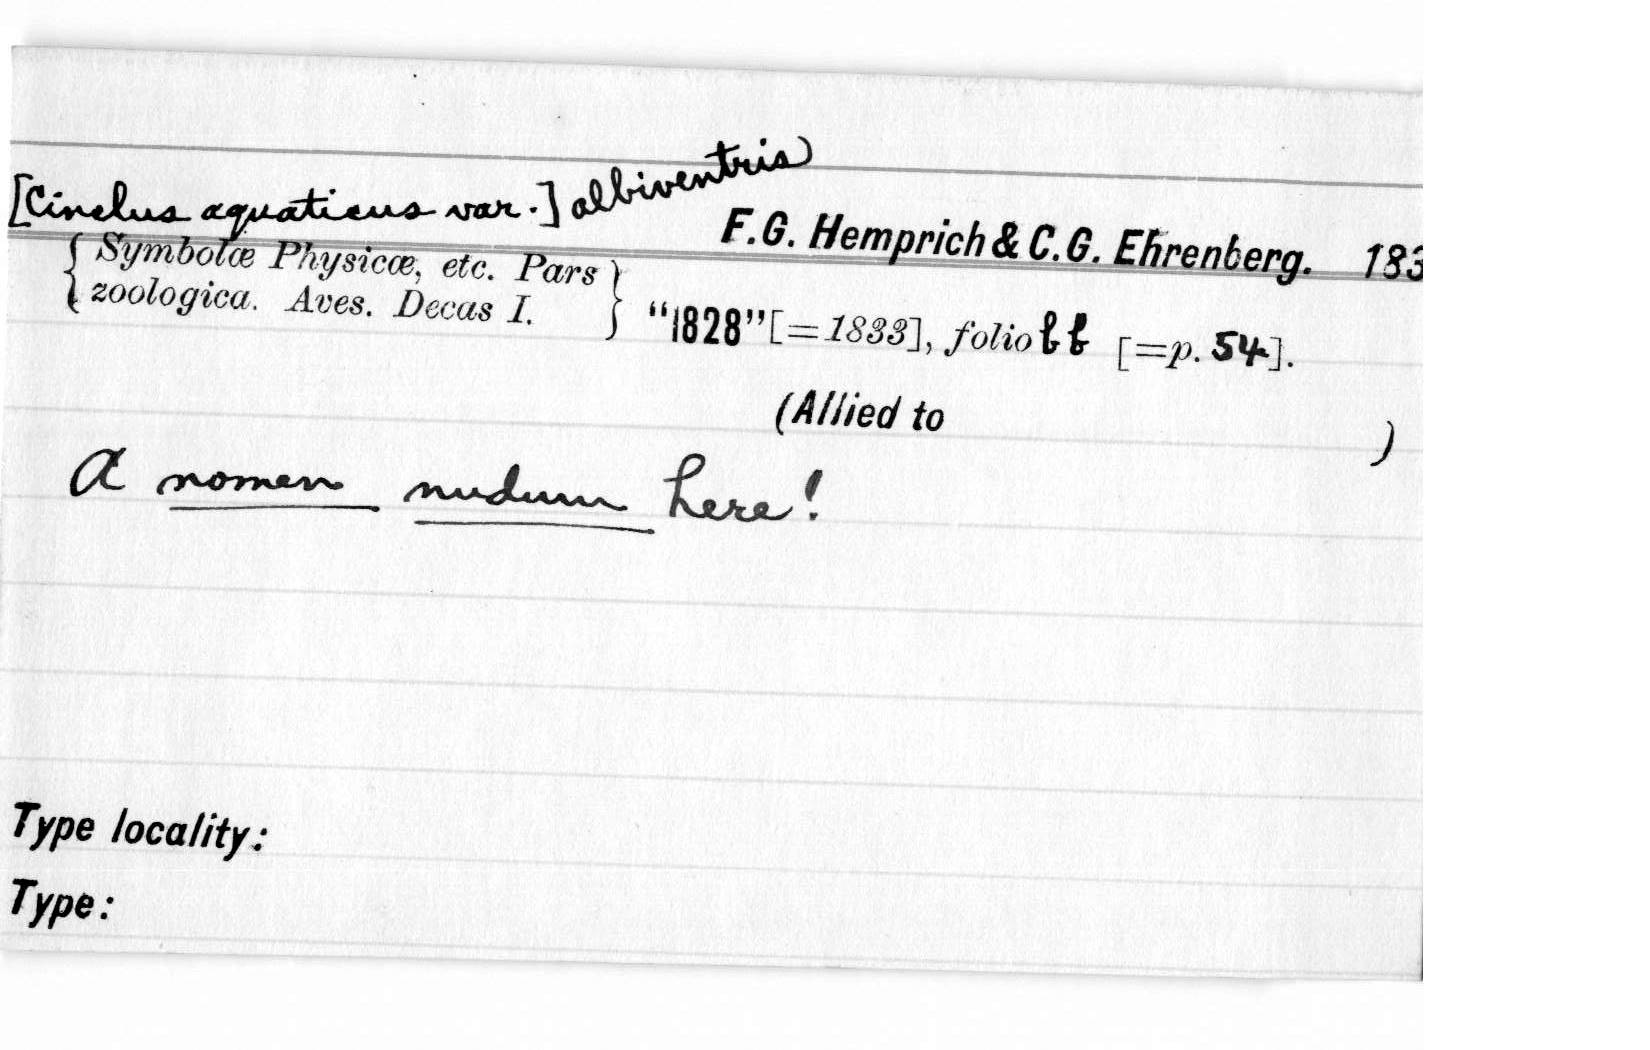 [Cinclus aquaticus var.] albiventris
F.G. Hemprich & C.G. Ehrenberg. 183
{ Symbolæ Physicæ, etc. Pars
zoologica. Aves. Decas I. } "1828" [=1833], folio bb [=p. 54].
(Allied to )
A nomen nudum here!
Type locality:
Type: